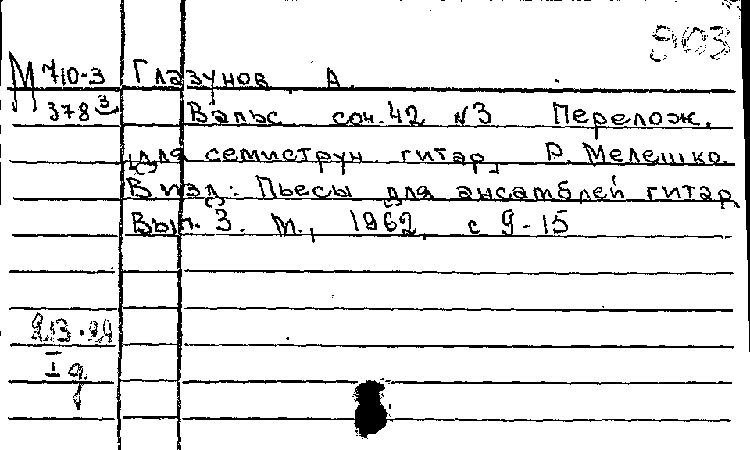 903
М 710-3 Глазунов А.
378 3 Вальс соч. 42 № 3 Перелож.
[для семиструн. гитар] Р. Мелешко.
В изд: Пьесы для ансамблей гитар.
Вып. 3. М., 1962, с 9-15
I д